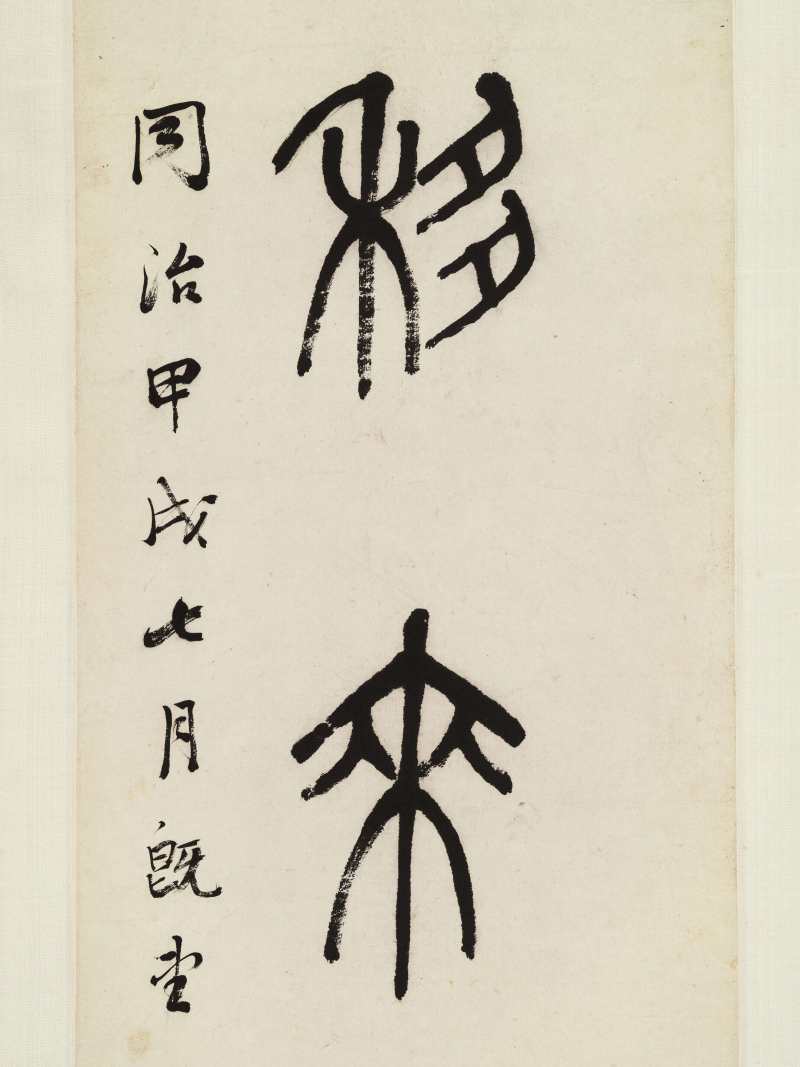 移來
同治甲戌七月既望